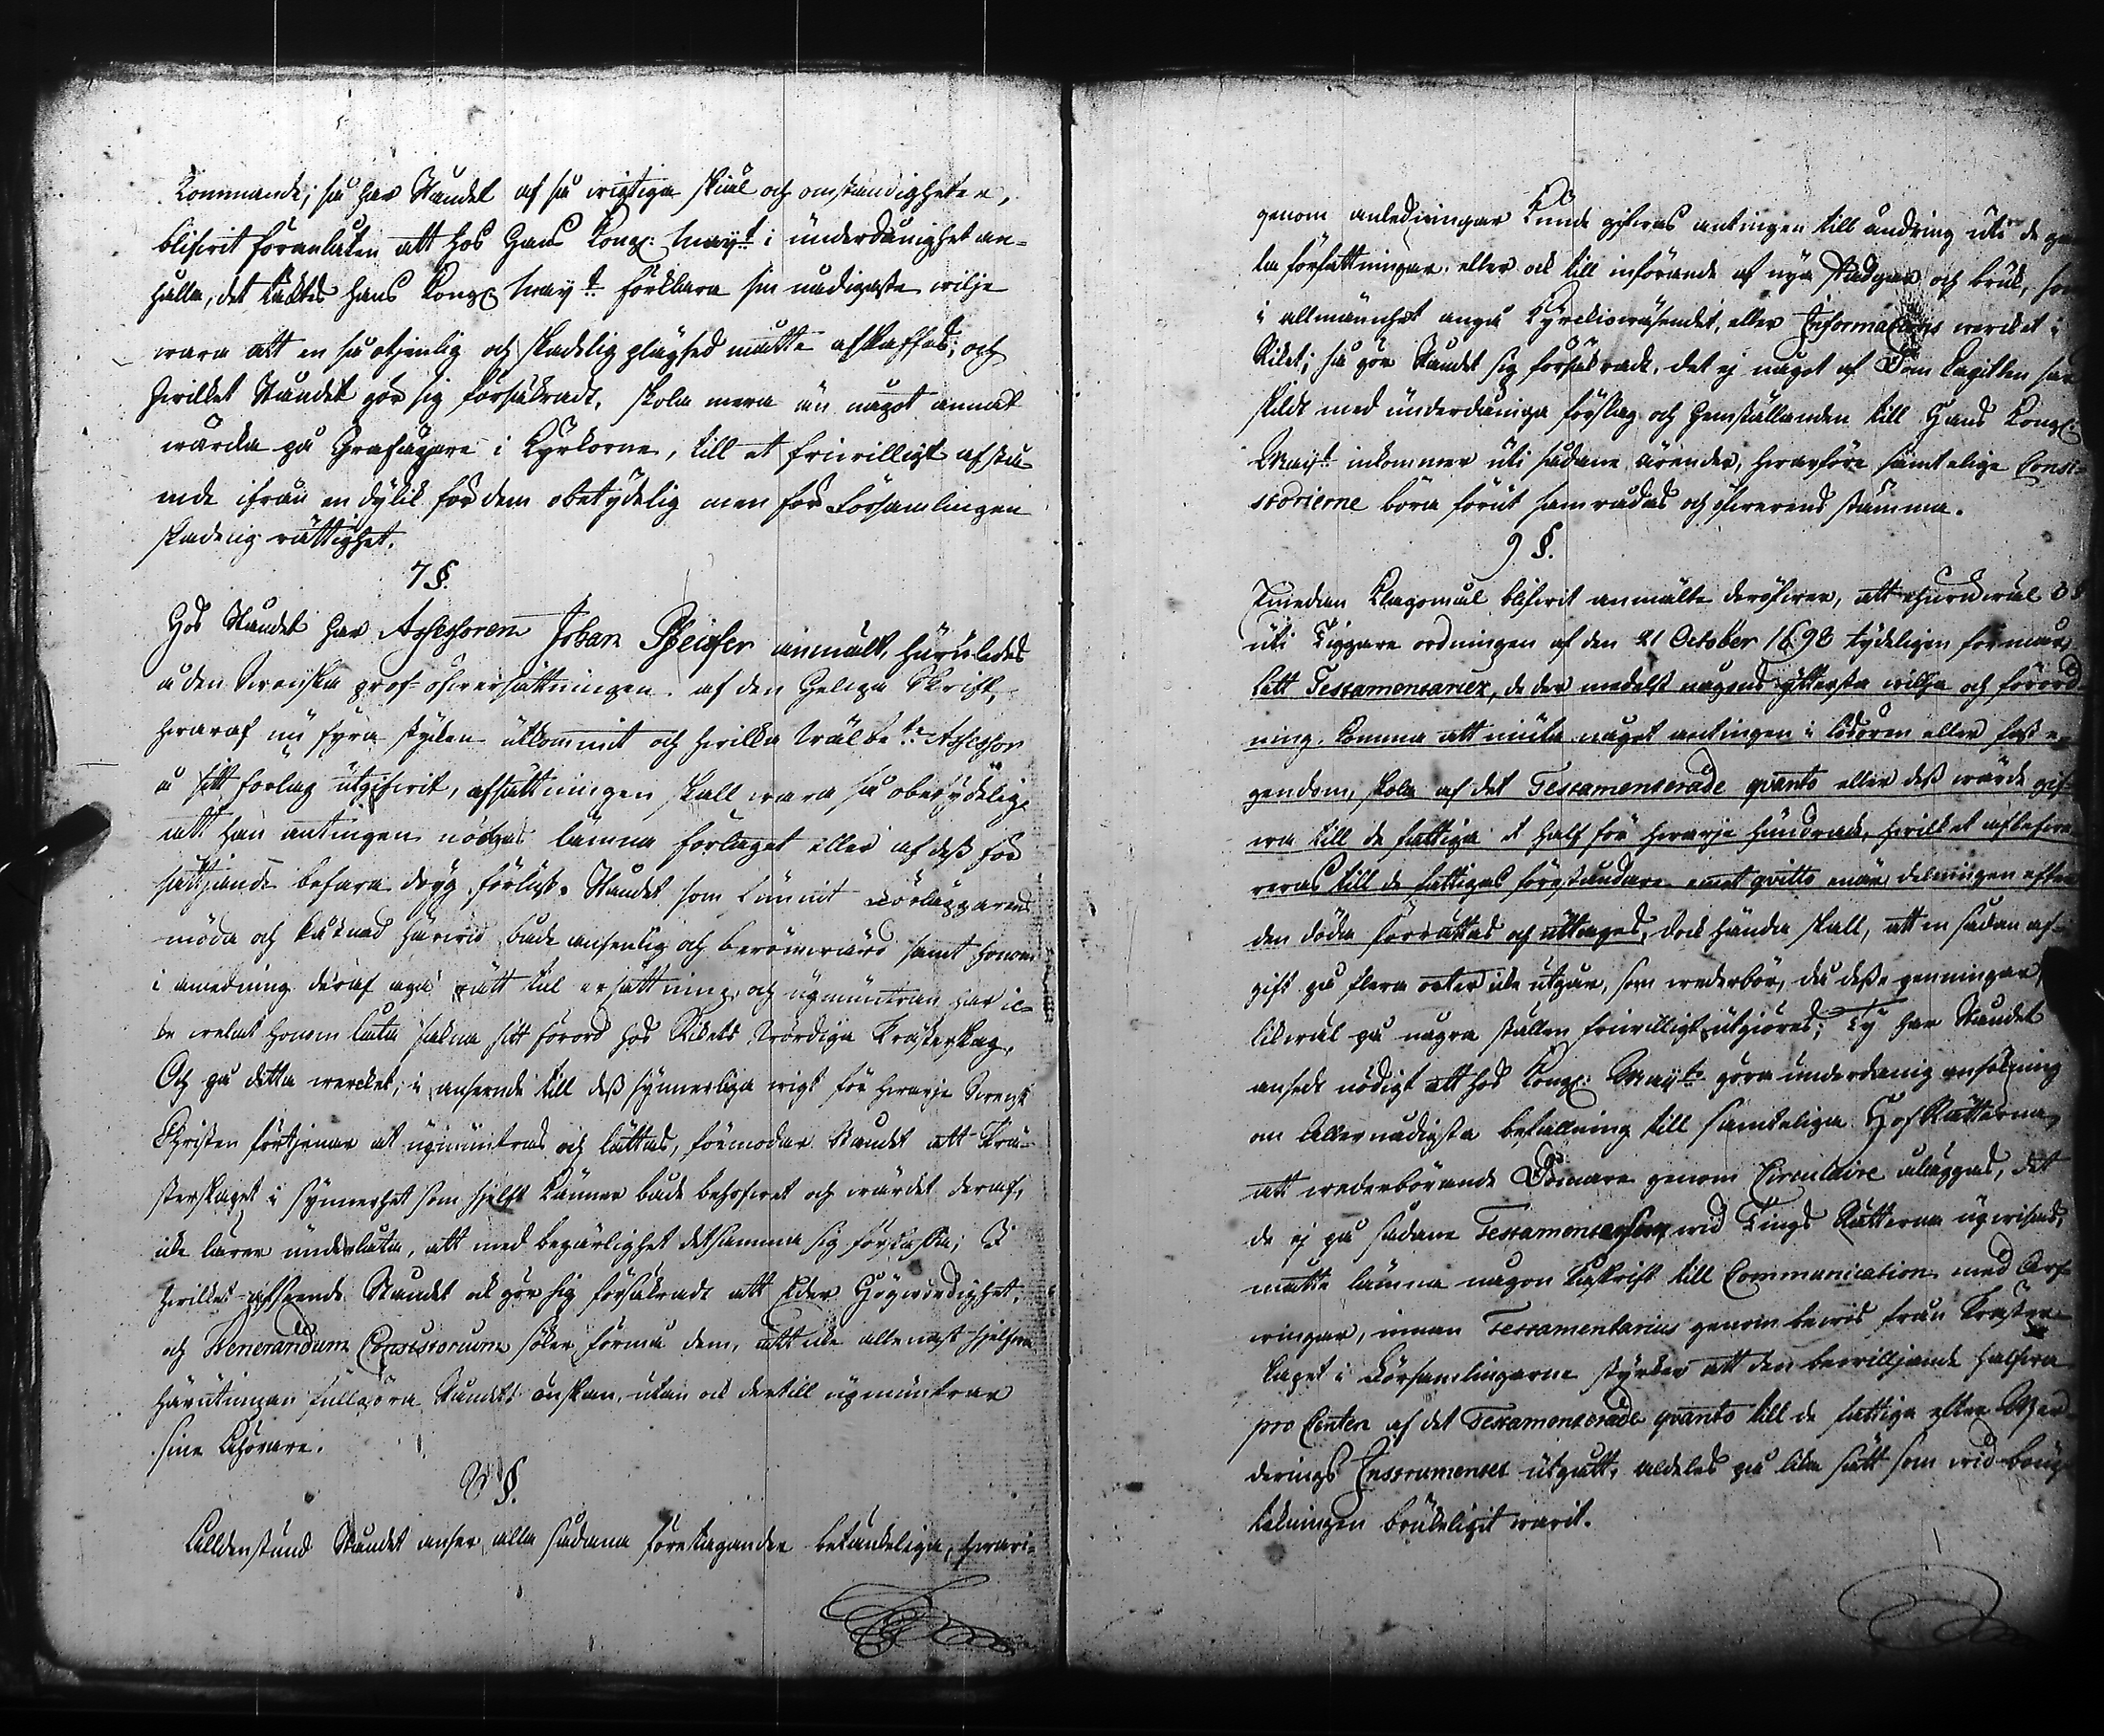 kommande; så har Ståndet af så wigtiga skiäl och omständigheter,
blifwit föranlåten att hos Hans Kongl: Maij:t i underdånighet an-
hålla, det täcktes Hans Kongl: Maij:t förklara sin nådigaste wilje
wara att en så otjenlig och skadelig plägsed måtte afskaffas; och
hwilket Ståndet gör sig försäkradt, skola mera än något annat
wärcka på Grafägare i Kyrkorne, till et friwilligt afstå-
ende ifrån en dylik för dem obetydelig men för Församlingen
skadelig rättighet.
7 §.
Hos Ståndet har Assessoren Johan Pfeiffer anmält, huruledes
å den Swenska prof-öfwersättningen af den Heliga Skrift,
hwaraf nu fyra stycken utkommit och hwilka Wälbe:te Assessor
å sitt förlag utgifwit, afsättningen skall wara så obetydelig,
att han antingen nödgas lämna förlaget eller af dess fort-
sättjande befara dryg förlust. Ståndet som funnit Förläggarens
möda och kåstnad härwid både ansenlig och berömwärd samt honom
i anledning deraf äga rätt till ersättning och upmuntran har ic-
ke welat honom låta sakna sitt förord hos Rikets Wördiga Prästerskap,
Och på detta wercket, i anseende till dess synnerliga wigt för hwarje Swensk
Christen förtjenar att upmuntras och lättas, förmodar Ståndet att Prä-
sterskapet i synnerhet som sjelft känner både behofwet och wärdet deraf,
icke lärer underlåta, att med begärlighet detsamma sig förskaffa; I
hwilket afseende Ståndet ock gör sig försäkradt att Eder Högwördighet,
och Venerandum Consistorium söker förmå dem, att icke allenast sjelfwa
härutinnan fullgöra Ståndets önskan, utan ock dertill upmuntrar
sine Åhörare.
8 §.
Alldenstund Ståndet anser alla sådana företaganden betänkeliga, hwari-
genom anledningar kunde gifwas antingen till ändring uti de gam-
la författningar eller ock till införande af nya Stadgar och bruk, som
i allmänhet angå Kyrckiowäsendet, eller Informations wercket i
Riket; så gör Ståndet sig försäkradt, det ej något af Dom Capitlen sär-
skildt med underdåniga förslag och hemställanden till Hans Kongl:
Maij:t inkommer uti sådane ärender, hwarföre samtelige Consi-
storierne böra förut samrådas och öfwerens stämma.
9 §.
Emedan Klagomål blifwit anmälte deröfwer, att ehuruwäl
uti Tiggare ordningen af den 21 October 1698 tydeligen förmår,
lätt Testamentariez, de der medelst någons yttersta wilja och förord-
ning, komma att niuta något antingen i lösören eller fast e-
gendom, skola af det Testamenterade qvanto eller dess wärde gif-
wa till de fattiga 1 half för hwarje hundrade, hwilket aflefwe-
reras till de fattigas föreståndare emot qvitto enär delningen efter
den döda förrättas och uttages, dock hända skall, att en sådan af-
gift på flera orter icke utgår, som wederbör, då desse penningar,
likwäl på några ställen friwilligt utgiöres; Ty har Ståndet
ansedt nödigt att hos Kongl: Maij:t göra underdånig ansökning
om Allernådigsta befallning till samtelige HofRätterna,
att wederbörande Domare genom Circulaire åläggas, det
de ej på sådane Testamenter som wid Tings Rätterna upwisas,
måtte lämna någon Påskrift till Communication med Arf-
wingar, innan Testamentarius genom bewis från Präster-
skapet i Församlingarne styrker att den bewilljande halfwa
pro Centen af det Testamenterade qvanto till de fattiga efter Wär-
derings Instrumentet utgått, aldeles på lika sätt som wid boup-
teckningen brukeligit warit.